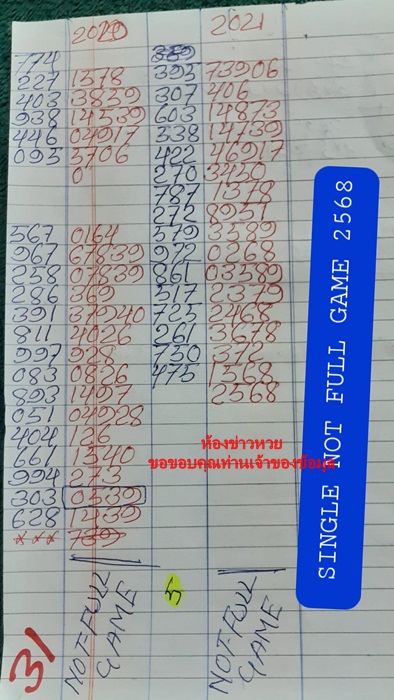 2020
774
227 1378
403 13839
938 14539
446 04917
095 5706
0
567 0164
967 67839
258 07839
286 369
391 37940
811 4026
997 928
083 0826
893 1497
051 04928
404 126
661 1340
994 273
303 0539
628 1239
*** 739
NOT-FULL
GAME
31
5
2021
389
395 73906
307 406
603 14873
338 14739
422 46917
270 3450
787 1378
272 8951
579 3589
972 0268
861 03589
517 2379
725 2468
261 3678
730 372
475 1568
2568
NOT-FULL
GAME
ห้องข่าวหวย
ขอขอบคุณท่านเจ้าของข้อมูล
SINGLE NOT FULL GAME 2568